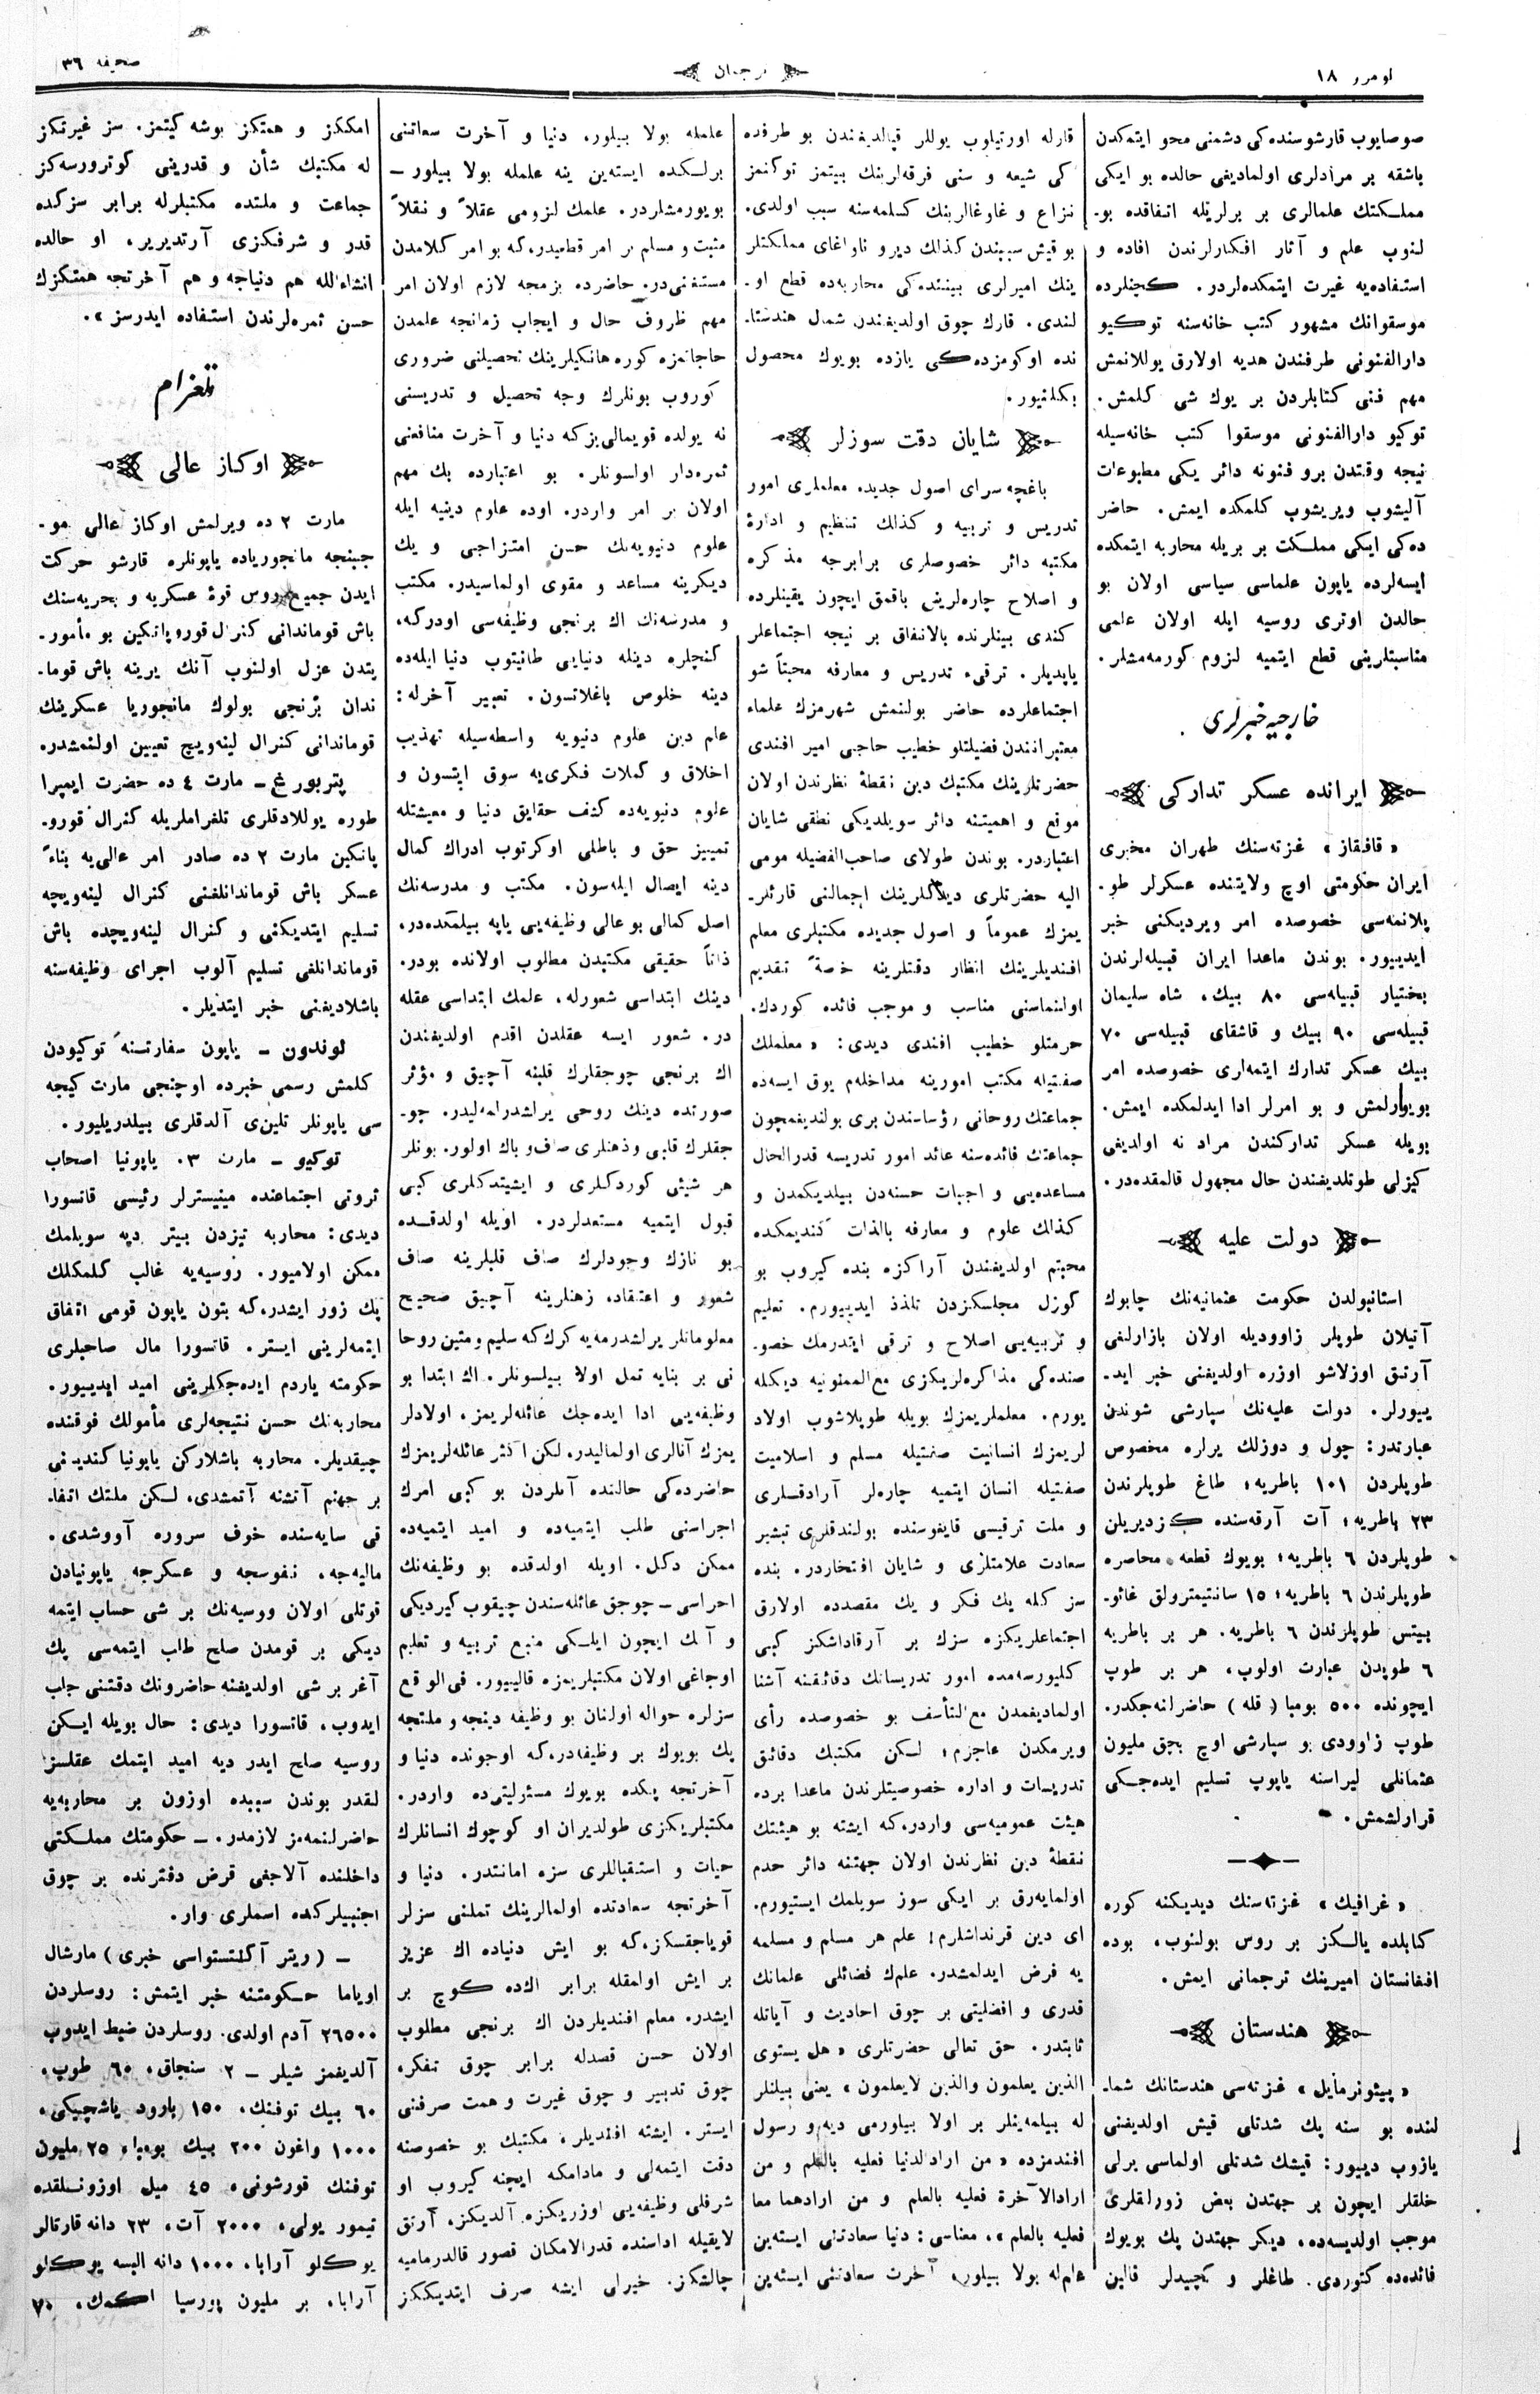 نومرو ١٨
ترجمان
صحيفه ٣٦
صوصايوب قارشوسنده‌كى دشمنى محو ايتمكدن
باشقه بر مرادلرى اولماديغى حالده بو ايكى
مملكتك علمالرى بر برلريله اتفاقده بو-
لنوب علم و آثار افكارلرندن افاده و
استفاده‌يه غيرت ايتمكده‌لردر. كچنلرده
موسقوانك مشهور كتب خانه‌سنه توكيو
دارالفنونى طرفندن هديه اولارق يوللانمش
مهم فنى كتابلردن بر يوك شى كلمش.
توكيو دارالفنونى موسقوا كتب خانه‌سيله
نيجه وقتدن برو فنونه دائر يكى مطبوعات
آليشوب ويريشوب كلمكده ايمش. حاضر
ده‌كى ايكى مملكت بر بريله محاربه ايتمكده
ايسه‌لرده ياپون علماسى سياسى اولان بو
حالدن اوترى روسيه ايله اولان علمى
مناسبتلرينى قطع ايتميه لزوم كورمه‌مشلر.
خارجيه خبرلرى
ايرانده عسكر تداركى
« قافقاز » غزته‌سنك طهران مخبرى
ايران حكومتى اوچ ولايتنده عسكرلر طو-
پلانمه‌سى خصوصده امر ويرديكنى خبر
ايدييور. بوندن ماعدا ايران قبيله‌لرندن
بختيار قبيله‌سى ٨٠ بيك، شاه سليمان
قبيله‌سى ٩٠ بيك و قاشقاى قبيله‌سى ٧٠
بيك عسكر تدارك ايتمه‌لرى خصوصده امر
بويوارلمش و بو امرلر ادا ايدلمكده ايمش.
بويله عسكر تداركندن مراد نه اولديغى
كيزلى طوتلديغندن حال مجهول قالمقده‌در.
دولت عليه
استانبولدن حكومت عثمانيه‌نك چابوك
آتيلان طوپلر زاووديله اولان بازارلغى
آرتق اوزلاشو اوزره اولديغنى خبر ايد-
ييورلر. دولت عليه‌نك سپارشى شوندن
عبارتدر: چول و دوزلك يرلره مخصوص
طوپلردن ١٠١ باطريه؛ طاغ طوپلرندن
٢٣ باطريه؛ آت آرقه‌سنده كزديريلن
طوپلردن ٦ باطريه؛ بويوك قطعه محاصره
طوپلرندن ٦ باطريه؛ ١٥ سانتيمترولق غائو-
بيتس طوپلرندن ٦ باطريه. هر بر باطريه
٦ طوپدن عبارت اولوب، هر بر طوپ
ايچونده ٥٠٠ بومبا ( قله ) حاضرلنه‌جكدر.
طوپ زاوودى بو سپارشى اوچ بچق مليون
عثمانلى ليراسنه ياپوب تسليم ايده‌جكى
قرارلشمش.
« غرافيك » غزته‌سنك ديديكنه كوره
كابلده يالكز بر روس بولنوب، بوده
افغانستان اميرينك ترجمانى ايمش.
هندستان
« پيئونرمايل » غزته‌سى هندستانك شما-
لنده بو سنه پك شدتلى قيش اولديغنى
يازوب دييور: قيشك شدتلى اولماسى يرلى
خلقلر ايچون بر جهتدن بعض زورلقلرى
موجب اولديسه‌ده، ديكر جهتدن پك بويوك
فائده‌ده كتوردى. طاغلر و كچيدلر قالين
قارله اورتيلوب يوللر قپالديغندن بو طرفده
كى شيعه و سنى فرقه‌لرينك بيتمز توكنمز
نزاع و غاوغالرينك كسلمه‌سنه سبب اولدى.
بو قيش سببندن كذالك ديرو ناواغاى مملكتلر
ينك اميرلرى بيننده‌كى محاربه‌ده قطع او-
لندى. قارك چوق اولديغندن شمال هندستا-
نده اوكومزده‌كى يازده بويوك محصول
بكلنيور.
شايان دقت سوزلر
باغچه سراى اصول جديد. معلملرى امور
تدريس و تربيه و كذالك تنظيم و ادارۀ
مكتبه دائر خصوصلرى برابرجه مذ كره
و اصلاح چاره‌لرينى باقمق ايچون يقينلرده
كندى بينلرنده بالاتفاق بر نيجه اجتماعلر
ياپديلر. ترقىء تدريس و معارفه محبتاً شو
اجتماعلرده حاضر بولنمش شهرمزك علماء
معتبراتندن فضيلتلو خطيب حاجى امير افندى
حضرتلرينك مكتبك دين نقطۀ نظرندن اولان
موقع و اهميتنه دائر سويلديكى نطقى شايان
اعتباردر. بوندن طولاى صاحب‌الفضيله مومى
اليه حضرتلرى ديدكلرينك اجمالنى قارئلر-
يمزك عموماً و اصول جديده مكتبلرى معلم
افنديلرينك انظار دقتلرينه خاصةً تقديم
اولنماسنى مناسب و موجب فائده كوردك.
حرمتلو خطيب افندى ديدى: « معلملك
صفتيله مكتب امورينه مداخله‌م يوق ايسه‌ده
جماعتك روحانى رؤساسندن برى بولنديغمچون
جماعتك فائده‌سنه عائد امور تدريسه قدرالحال
مساعده‌يى و اجبات حسنه‌دن بيلديكمدن و
كذالك علوم و معارفه بالذات كنديمكده
محبتم اولديغندن آراكزه بنده كيروب بو
كوزل مجلسكزدن تلذذ ايدييورم. تعليم
و تربيه‌يى اصلاح و ترقى ايتدرمك خصو-
صنده‌كى مذاكره‌لريكزى مع‌الممنونيه ديكله
يورم. معلملريمزك بويله طوپلاشوب اولاد
لريمزك انسانيت صفتيله مسلم و اسلاميت
صفتيله انسان ايتميه چاره‌لر آرادقلرى
و ملت ترقيسى قايغوسنده بولندقلرى تبشير
سعادت علامتلرى و شايان افتخاردر. بنده
سز كله يك فكر و يك مقصدده اولارق
اجتماعلريكزه سزك بر آرقاداشكز كبى
كليورسه‌مده امور تدريسانك دقائقنه آشنا
اولماديغمدن مع‌التأسف بو خصوصده رأى
ويرمكدن عاجزم؛ لكن مكتبك دقائق
تدريسات و اداره خصوصيتلرندن ماعدا برده
هيئت عموميه‌سى واردر، كه ايشته بو هيئتك
نقطۀ دين نظرندن اولان جهتنه دائر حدم
اولمايه‌رق بر ايكى سوز سويلمك ايستيورم.
اى دين قرنداشلرم! علم هر مسلم و مسلمه
يه فرض ايدلمشدر. علمك فضائلى علمانك
قدرى و افضليتى بر چوق احاديث و آياتله
ثابتدر. حق تعالى حضرتلرى « هل يستوى
الذين يعلمون والذين لايعلمون » يعنى بيلنلر
له بيلمه‌ينلر بر اولا بيلورمى ديه و رسول
افندمزده « من ارادالدنيا فعليه بالعلم و من
ارادالآخرة فعليه بالعلم و من ارادهما معا
فعليه بالعلم »، معناسى: دنيا سعادتنى ايسته‌ين
علم‌له بولا بيلور، آخرت سعادتنى ايسته‌ين
علمله بولا بيلور، دنيا و آخرت سعاتنى
برلكده ايسته‌ين ينه علمله بولا بيلور —
بويورمشلردر. علمك لزومى عقلاً و نقلاً
مثبت و مسلم بر امر قطعيدر، كه بو امر كلامدن
مستغنى‌در. حاضرده بزمجه لازم اولان امر
مهم ظروف حال و ايجاب زمانجه علمدن
حاجاتمزه كوره هانكيلرينك تحصيلنى ضرورى
كوروب بونلرك وجه تحصيل و تدريسنى
نه يولده قويمالى‌يز كه دنيا و آخرت منافعنى
ثمره‌دار اولسونلر. بو اعتبارده بك مهم
اولان بر امر واردر. اوده علوم دينيه ايله
علوم دنيويه‌نك حسن امتزاجى و يك
ديكرينه مساعد و مقوى اولماسيدر. مكتب
و مدرسه‌نك اك برنجى وظيفه‌سى اودركه،
كنچلره دينله دنيايى طانيتوب دنيا ايله‌ده
دينه خلوص باغلاتسون. تعبير آخرله:
علم دين علوم دنيويه واسطه‌سيله تهذيب
اخلاق و كملات فكرى‌يه سوق ايتسون و
علوم دنيويه‌ده كشف حقايق دنيا و معيشتله
تمييز حق و باطلى اوكرتوب ادراك كمال
دينه ايصال ايله‌سون. مكتب و مدرسه‌نك
اصل كمالى بو عالى وظيفه‌يى ياپه بيلمكده‌در،
ذاتاً حقيقى مكتبدن مطلوب اولانده بودر.
دينك ابتداسى شعورله، علمك ابتداسى عقله
در. شعور ايسه عقلدن اقدم اولديغندن
اك برنجى چوجقلرك قلبنه آچيق و مؤثر
صورتده دينك روحى يرلشدرلمه‌ليدر. چو-
جقلرك قلبى و ذهنلرى صاف و پاك اولور. بونلر
هر شيئى كوردكلرى و ايشيتدكلرى كبى
قبول ايتميه مستعدلردر. اويله اولدقده
بو نازك وجودلرك صاف قلبلرينه صاف
شعور و اعتقاد، زهنلرينه آچيق صحيح
معلوماتلر يرلشدرمه‌يه كرك كه سليم ومتين روحا
نى بر بنايه تمل اولا بيلسونلر. اك ابتدا بو
وظيفه‌يى ادا ايده‌جك عائله‌لريمز، اولادلر
يمزك آنالرى اولماليدر. لكن اكثر عائله‌لريمزك
حاضرده‌كى حالنده آنلردن بو كبى امرك
اجراسنى طلب ايتميه‌ده و اميد ايتميه‌ده
ممكن دكل. اويله اولدقده بو وظيفه‌نك
اجراسى — چوجق عائله‌سندن چيقوب كيرديكى
و آنك ايچون ايلكى منبع تربيه و تعليم
اوجاغى اولان مكتبلريمزه قالييور. فى‌الوقع
سزلره حواله اولنان بو وظيفه دينجه و ملتجه
پك بويوك بر وظيفه‌در، كه اوجونده دنيا و
آخرتجه پكده بويوك مسئوليتى‌ده واردر.
مكتبلريكزى طولديران او كوچوك انسانلرك
حيات و استقباللرى سزه امانتدر. دنيا و
آخرتجه سعادتده اولمالرينك تملنى سزلر
قوياجقسكز، كه بو ايش دنياده اك عزيز
بر ايش اولمقله برابر اك‌ده كوچ بر
ايشدر. معلم افنديلردن اك برنجى مطلوب
اولان حسن قصدله برابر چوق تنفكر،
چوق تدبير و چوق غيرت و همت صرفنى
ايستر. ايشته افنديلر، مكتبك بو خصوصنه
دقت ايتمه‌لى و مادامكه ايچنه كيروب او
شرفلى وظيفه‌يى اوزريكزه آلديكز، آرتق
لايقيله اداسنده قدرالامكان قصور قالدرماميه
چالشكز. خيرلى ايشه صرف ايتديككز
امككز و همتكز بوشه كيتمز. سز غيرتكز
له مكتبك شأن و قدرينى كوترورسه‌كز
جماعت و ملتده مكتبلرله برابر سزكده
قدر و شرفكزى آرتديرير، او حالده
انشاءالله هم دنياجه و هم آخرتجه همتكزك
حسن ثمره‌لرندن استفاده ايدرسز ».
تلغرام
اوكاز عالى
مارت ٢ ده ويرلمش اوكاز عالى مو-
جبنجه مانجورياده ياپونلره قارشو حركت
ايدن جميع روس قوۀ عسكريه و بحريه‌سنك
باش قوماندانى كنرال قوروپاتكين بو مأمور-
يتدن عزل اولنوب آنك يرينه باش قوما-
ندان برنجى بولوك مانجوريا عسكرينك
قوماندانى كنرال لينه‌ويچ تعيين اولنمشدر.
پتربورغ — مارت ٤ ده حضرت ايمپرا
طوره يوللادقلرى تلغراملريله كنرال قورو-
پاتكين مارت ٢ ده صادر امر عالى‌يه بناءً
عسكر باش قوماندانلغنى كنرال لينه‌ويچه
تسليم ايتديكنى و كنرال لينه‌ويچده باش
قوماندانلغى تسليم آلوب اجراى وظيفه‌سنه
باشلاديغنى خبر ايتديلر.
لوندون — ياپون سفارتنه توكيودن
كلمش رسمى خبرده اوچنجى مارت كيجه
سى ياپونلر تلين‌ى آلدقلرى بيلدريليور.
توكيو — مارت ٣. ياپونيا اصحاب
ثروتى اجتماعنده مينيسترلر رئيسى قاتسورا
ديدى: محاربه تيزدن بيتر ديه سويلمك
ممكن اولاميور. روسيه‌يه غالب كلمكلك
پك زور ايشدر، كه بتون ياپون قومى اتفاق
ايتمه‌لرينى ايستر. قاتسورا مال صاحبلرى
حكومته ياردم ايده‌جكلرينى اميد ايدييور.
محاربه‌نك حسن نتيجه‌لرى مأمولك فوقنده
چيقديلر. محاربه باشلاركن ياپونيا كنديسنى
بر جهنم آتشنه آتمشدى، لكن ملتك اتفا-
قى سايه‌سنده خوف سروره آووشدى.
ماليه‌جه، نفوسجه و عسكرجه ياپونيادن
قوتلى اولان ووسيه‌نك بر شى حساب ايتمه
ديكى بر قومدن صلح طلب ايتمه‌سى پك
آغر بر شى اولديغنه حاضرونك دقتنى جلب
ايدوب، قاتسورا ديدى: حال بويله ايكن
روسيه صلح ايدر ديه اميد ايتمك عقلسز
لقدر بوندن سببده اوزون بر محاربه‌يه
حاضرلنمه‌مز لازمدر. — حكومتك مملكتى
داخلنده آلاجغى قرض دفترنده بر چوق
اجنبيلركده اسملرى وار.
— ( ريتر آگنتستواسى خبرى ) مارشال
اوياما حكومتنه خبر ايتمش: روسلردن
٢٦٥٠٠ آدم اولدى. روسلردن ضبط ايدوب
آلديغمز شيلر — ٢ سنجاق، ٦٠ طوپ،
٦٠ بيك توفنك، ١٥٠ بارود ياشچيكى،
١٠٠٠ واغون ٢٠٠ بيك بومبا، ٢٥ مليون
توفنك قورشونى، ٤٥ ميل اوزونلقده
تيمور يولى، ٢٠٠٠ آت، ٢٣ دانه قارتالر
يوكلو آرابا، ١٠٠٠ دانه البسه يوكلو
آرابا، بر مليون پورسيا اكمك، ٧٠